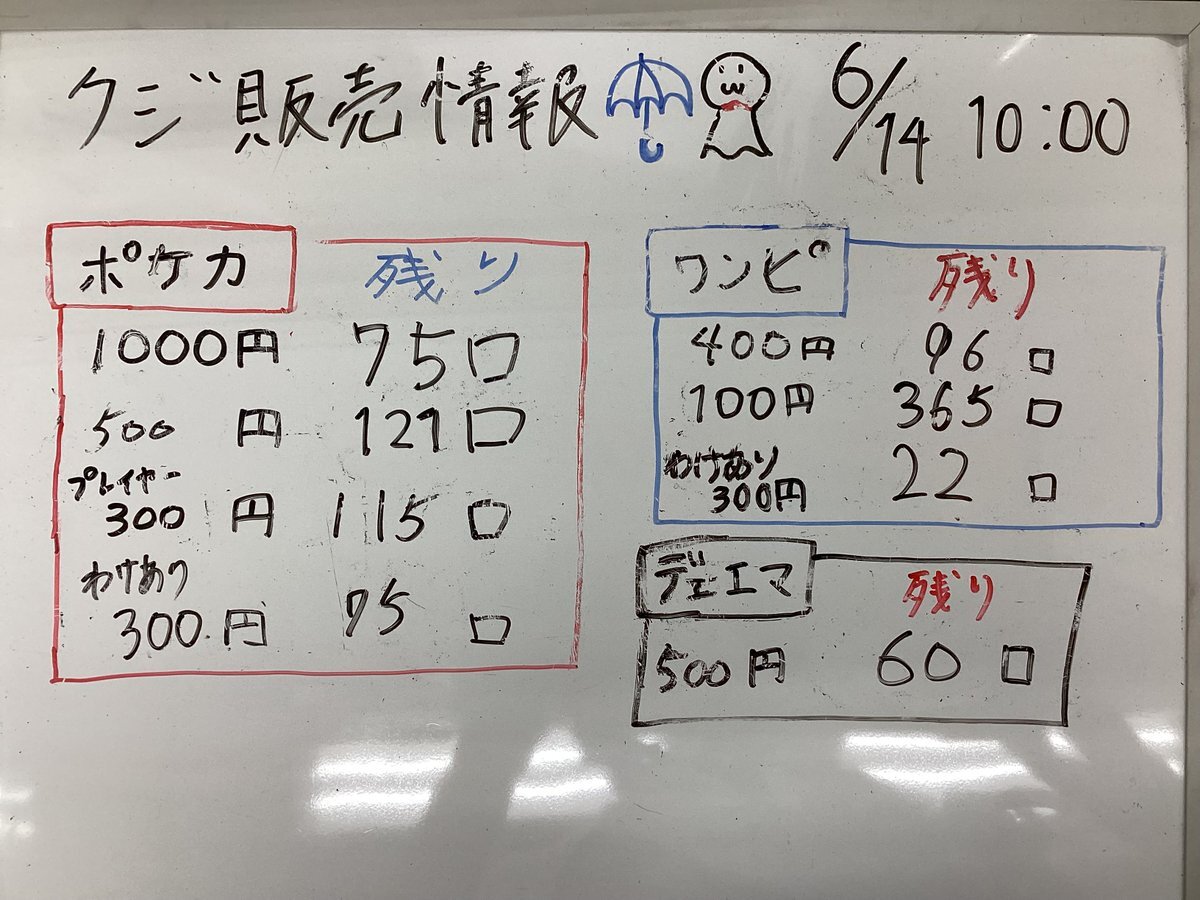 クジ販売情報 6/14 10:00
ポケカ 残り
1000円 75口
500円 121口
プレイヤー
300円 115口
わけあり
300円 75口
ワンピ 残り
400円 96口
100円 365口
わけあり
300円 22口
デュエマ 残り
500円 60口